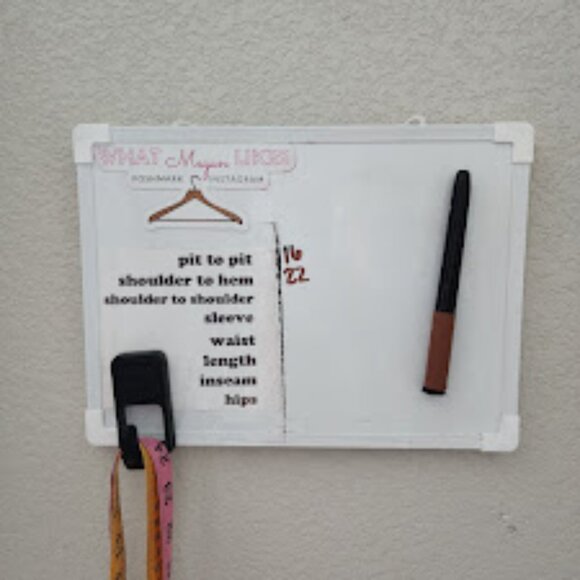 WHAT Megan LIKES
POSHMARK INSTAGRAM
pit to pit 16
shoulder to hem 22
shoulder to shoulder
sleeve
waist
length
inseam
hips